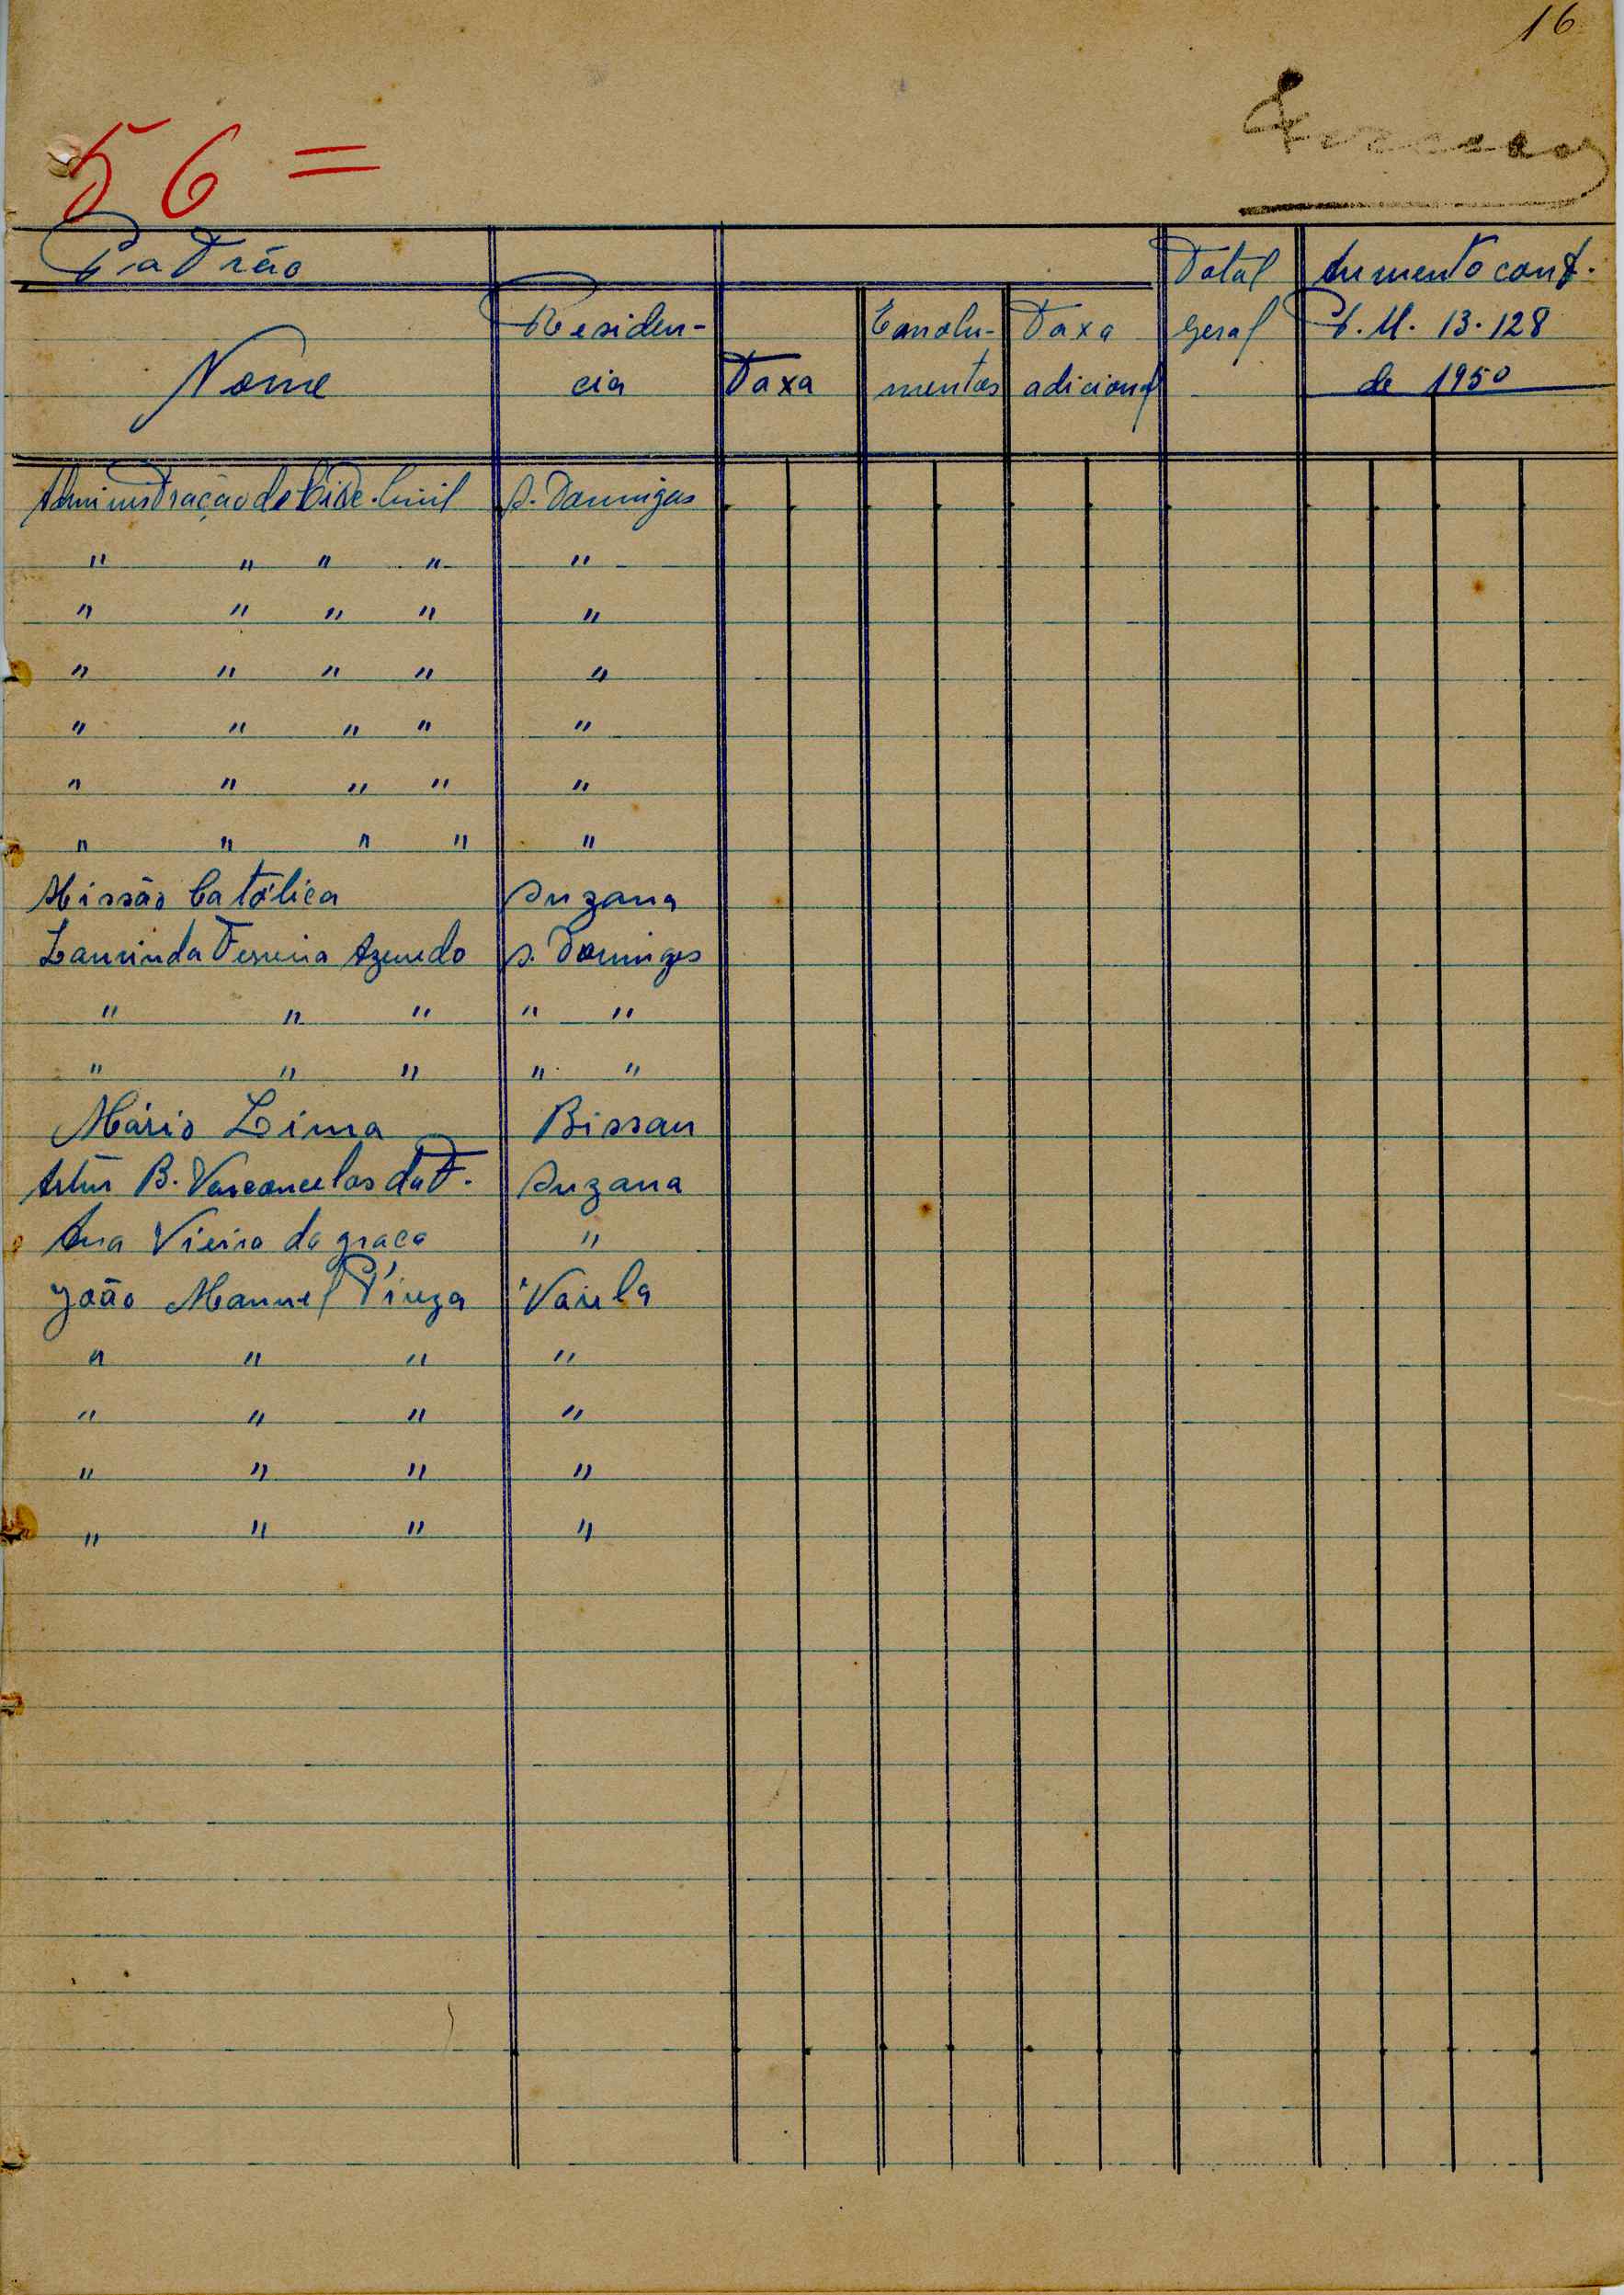 16
56=
Patrão
Total
Aumento conf.
Residen-
Emolu-
Taxa
geral
P. M. 13.128
Nome
cia
Taxa
mentos
adicional
de 1950
Administração de Circ. Civil S. Domingos
" " " " "
" " " " "
" " " " "
" " " " "
" " " " "
" " " " "
Missão Católica Suzana
Laurinda Ferreira Azevedo S. Domingos
" " " " "
" " " " "
Mário Lima Bissau
Artur B. Vasconcelos da F. Suzana
Ana Vieira da graça "
João Manuel Varela
" " " "
" " " "
" " " "
" " " "